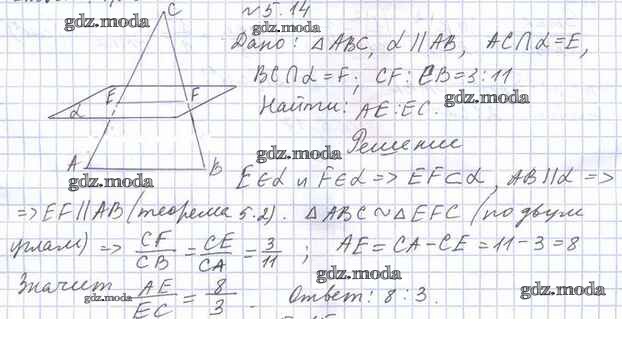 C
gdz.moda
№5.14
gdz.moda
Дано: △ABC, α∥AB, AC∩α=E,
BC∩α=F; CF:CB=3:11
E F
Найти: AE:EC.
gdz.moda
α
Решение
gdz.moda
A B
gdz.moda
E∈α и F∈α => EF⊂α, AB∥α =>
=> EF∥AB (теорема 5.2). △ABC∼△EFC (по двум
углам) => CF/CB = CE/CA = 3/11; AE=CA-CE=11-3=8
gdz.moda
Значит AE/EC = 8/3. Ответ: 8:3.
gdz.moda
gdz.moda